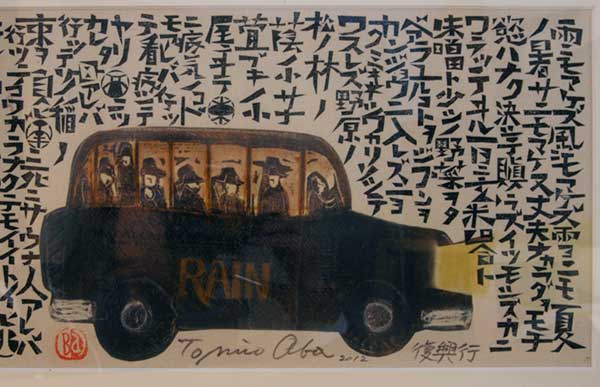 雨ニモマケズ風ニモマケズ雪ニモ夏
ノ暑サニモマケヌ丈夫ナカラダヲモチ
慾ハナク決シテ瞋ラズイツモシズカニ
ワラッテヰル一日ニ玄米四合ト
味噌ト少シノ野菜ヲタ
ベアラユルコトヲジブンヲ
カンジョウニ入レズニヨ
クミキキシワカリソシテ
ワスレズ野原ノ
松ノ林ノ
蔭ノ小サナ
萓ブキノ小
屋ニヰテ東
ニ病気ノコド
モアレバ行ッ
テ看病シテ
ヤリ西ニツ
カレタ母アレバ
行ッテソノ稲ノ
束ヲ負ヒ南ニ死ニサウナ人アレバ
行ッテコワガラナクテモイイトイヒ
RAIN
Tomio Aba 2012
復興行